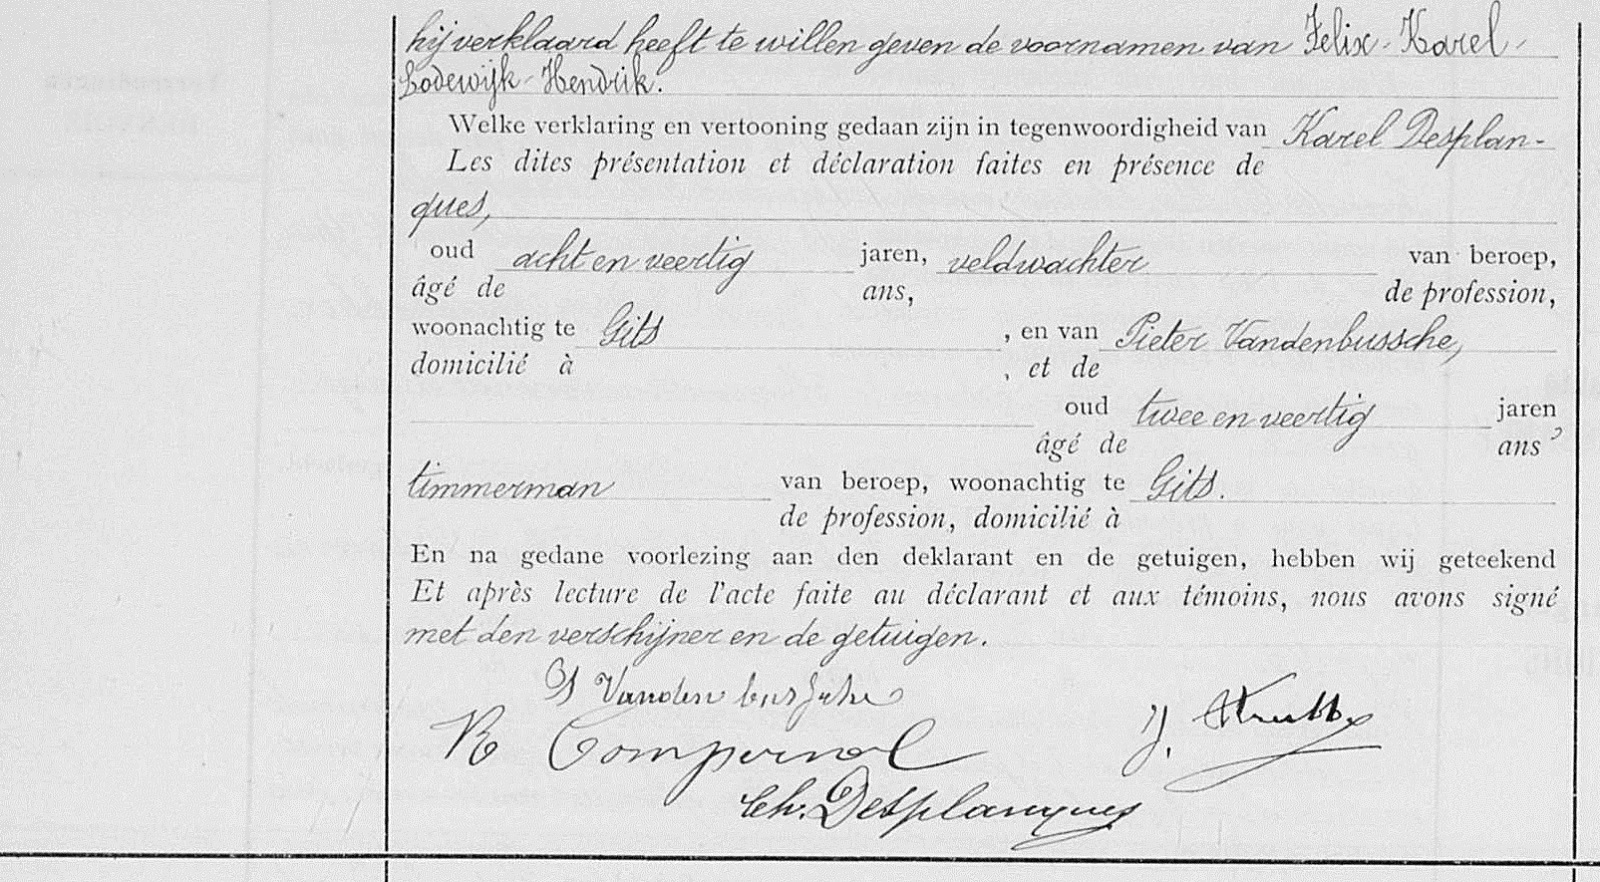 hij verklaard heeft te willen geven de voornamen van Felix-Karel-
Lodewijk-Hendrik.
Welke verklaring en vertooning gedaan zijn in tegenwoordigheid van Karel Desplan-
Les dites présentation et déclaration faites en présence de
ques,
oud acht en veertig jaren, veldwachter van beroep,
âgé de ans, de profession,
woonachtig te Gits , en van Pieter Vandenbussche,
domicilié à , et de
oud twee en veertig jaren
âgé de ans,
timmerman van beroep, woonachtig te Gits.
de profession, domicilié à
En na gedane voorlezing aan den deklarant en de getuigen, hebben wij geteekend
Et après lecture de l'acte faite au déclarant et aux témoins, nous avons signé
met den verschijner en de getuigen.
P Vandenbussche
R Compernol J.
Ch. Desplanques